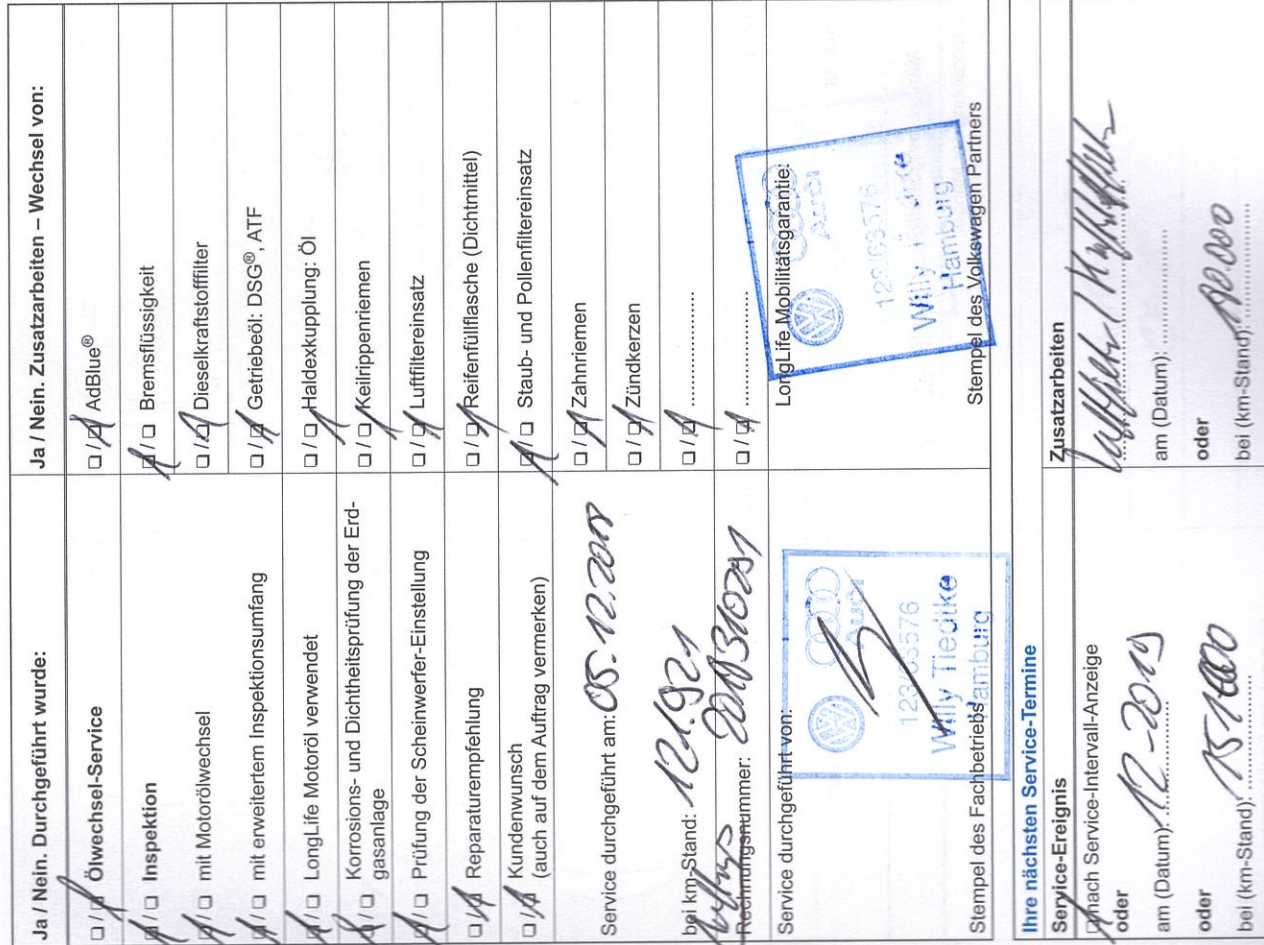 Ja / Nein. Durchgeführt wurde:
Ölwechsel-Service
Inspektion
mit Motorölwechsel
mit erweitertem Inspektionsumfang
LongLife Motoröl verwendet
Korrosions- und Dichtheitsprüfung der Erd-
gasanlage
Prüfung der Scheinwerfer-Einstellung
Reparaturempfehlung
Kundenwunsch
(auch auf dem Auftrag vermerken)
Service durchgeführt am: 05.12.2018
bei km-Stand: 121.921
Rechnungsnummer:
Service durchgeführt von:
Audi
123/03576
Willy Tiedtke
Hamburg
Stempel des Fachbetriebs
Ja / Nein. Zusatzarbeiten – Wechsel von:
AdBlue®
Bremsflüssigkeit
Dieselkraftstofffilter
Getriebeöl: DSG®, ATF
Haldexkupplung: Öl
Keilrippenriemen
Luftfiltereinsatz
Reifenfüllflasche (Dichtmittel)
Staub- und Pollenfiltereinsatz
Zahnriemen
Zündkerzen
LongLife Mobilitätsgarantie:
Audi
Willy
Hamburg
Stempel des Volkswagen Partners
Ihre nächsten Service-Termine
Service-Ereignis
nach Service-Intervall-Anzeige
oder
am (Datum): 12-2019
oder
bei (km-Stand):
Zusatzarbeiten
am (Datum):
oder
bei (km-Stand):